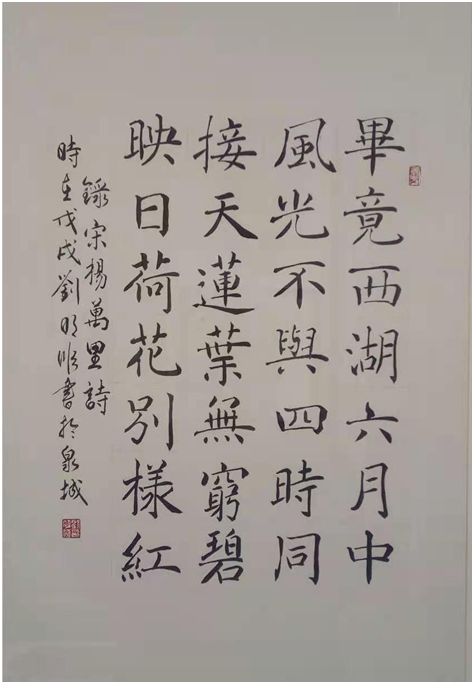 畢竟西湖六月中
風光不與四時同
接天蓮葉無窮碧
映日荷花別樣紅
錄宋楊萬里詩
時在戊戌劉明順書於泉城